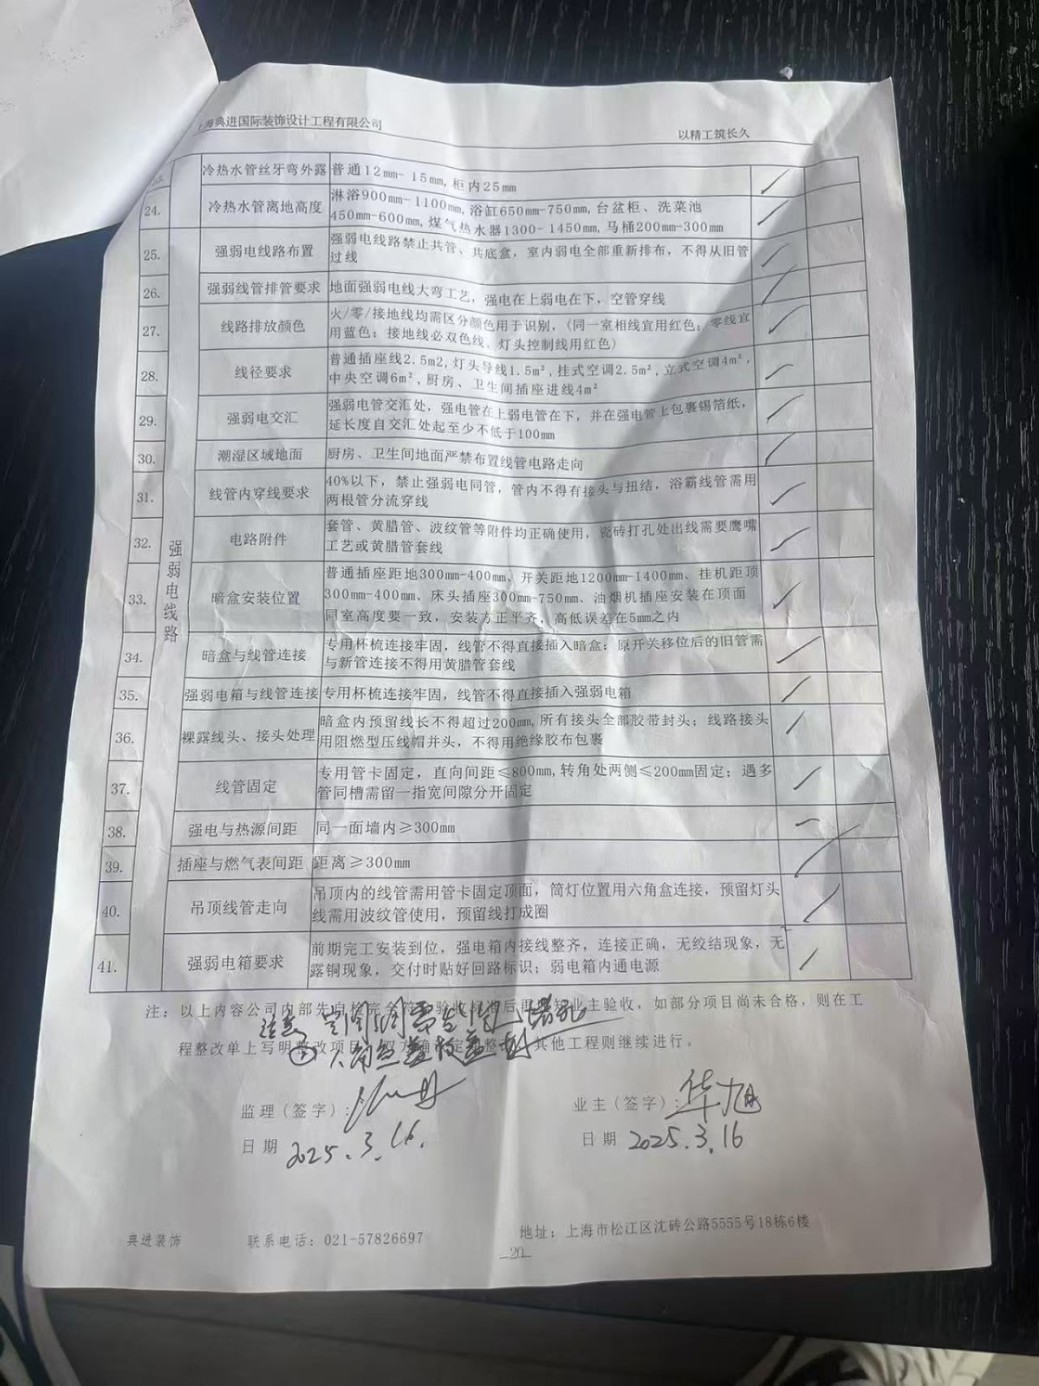 上海典进国际装饰设计工程有限公司
以精工筑长久
冷热水管丝牙弯外露 普通12mm-15mm,柜内25mm
24. 冷热水管离地高度 淋浴900mm-1100mm,浴缸650mm-750mm,台盆柜、洗菜池
450mm-600mm,煤气热水器1300-1450mm,马桶200mm-300mm
强弱电线路
25. 强弱电线路布置 强弱电线路禁止共管、共底盒，室内弱电全部重新排布，不得从旧管
过线
26. 强弱线管排管要求 地面强弱电线大弯工艺，强电在上弱电在下，空管穿线
27. 线路排放颜色 火/零/接地线均需区分颜色用于识别，(同一室相线宜用红色；零线宜
用蓝色；接地线必双色线、灯头控制线用红色)
28. 线径要求 普通插座线2.5m2,灯头导线1.5m²,挂式空调2.5m²,立式空调4m²,
中央空调6m²,厨房、卫生间插座进线4m²
29. 强弱电交汇 强弱电管交汇处，强电管在上弱电管在下，并在强电管上包裹锡箔纸，
延长度自交汇处起至少不低于100mm
30. 潮湿区域地面 厨房、卫生间地面严禁布置线管电路走向
31. 线管内穿线要求 40%以下，禁止强弱电同管，管内不得有接头与扭结，浴霸线管需用
两根管分流穿线
32. 电路附件 套管、黄腊管、波纹管等附件均正确使用，瓷砖打孔处出线需要鹰嘴
工艺或黄腊管套线
33. 暗盒安装位置 普通插座距地300mm-400mm、开关距地1200mm-1400mm、挂机距顶
300mm-400mm、床头插座300mm-750mm、油烟机插座安装在顶面
同室高度要一致，安装方正平齐，高低误差在5mm之内
34. 暗盒与线管连接 专用杯梳连接牢固，线管不得直接插入暗盒；原开关移位后的旧管需
与新管连接不得用黄腊管套线
35. 强弱电箱与线管连接 专用杯梳连接牢固，线管不得直接插入强弱电箱
36. 裸露线头、接头处理 暗盒内预留线长不得超过200mm,所有接头全部胶带封头；线路接头
用阻燃型压线帽并头，不得用绝缘胶布包裹
37. 线管固定 专用管卡固定，直向间距≤800mm,转角处两侧≤200mm固定；遇多
管同槽需留一指宽间隙分开固定
38. 强电与热源间距 同一面墙内≥300mm
39. 插座与燃气表间距 距离≥300mm
40. 吊顶线管走向 吊顶内的线管需用管卡固定顶面，筒灯位置用六角盒连接，预留灯头
线需用波纹管使用，预留线打成圈
41. 强弱电箱要求 前期完工安装到位，强电箱内接线整齐，连接正确，无绞结现象，无
露铜现象，交付时贴好回路标识；弱电箱内通电源
注：以上内容公司内部先自检完全符合验收标准后再通知业主验收，如部分项目尚未合格，则在工
程整改单上写明整改项目，其他工程则继续进行。
监理（签字）：
业主（签字）：华旭
日期 2025.3.16.
日期 2025.3.16
典进装饰 联系电话：021-57826697 地址：上海市松江区沈砖公路5555号18栋6楼
20